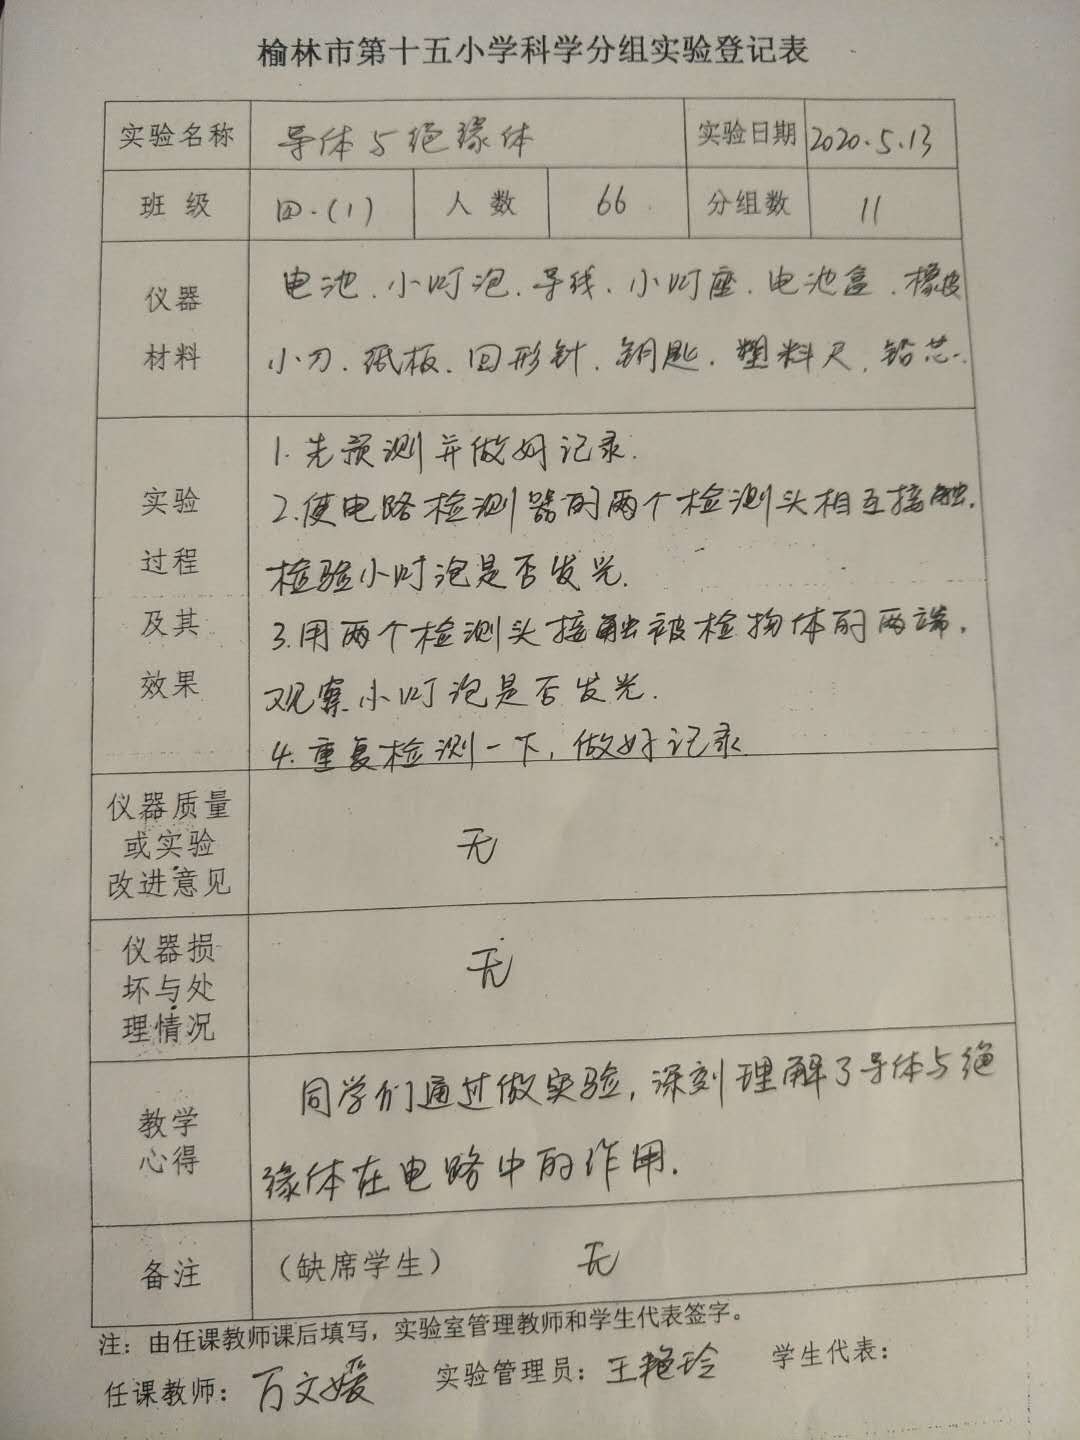 榆林市第十五小学科学分组实验登记表
实验名称 导体与绝缘体 实验日期 2020.5.13
班级 四.(1) 人数 66 分组数 11
仪器 材料
电池、小灯泡、导线、小灯座、电池盒、橡皮
小刀、纸板、回形针、钥匙、塑料尺、铅芯、
实验 过程 及其 效果
1.先预测并做好记录.
2.使电路检测器的两个检测头相互接触,
检验小灯泡是否发光.
3.用两个检测头接触被检物体的两端,
观察小灯泡是否发光.
4.重复检测一下,做好记录
仪器质量
或实验
改进意见
无
仪器损
坏与处
理情况
无
教学
心得
同学们通过做实验,深刻理解了导体与绝
缘体在电路中的作用.
备注 (缺席学生) 无
注：由任课教师课后填写，实验室管理教师和学生代表签字。
任课教师：万文媛 实验管理员：王艳玲 学生代表：